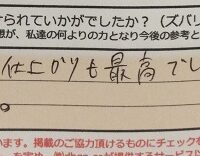 けられていかがでしたか？（ズバリ
想が、私達の何よりの力となり今後の参考と
仕上がりも最高でし
。
います。掲載のご協力頂けるものにチェックを